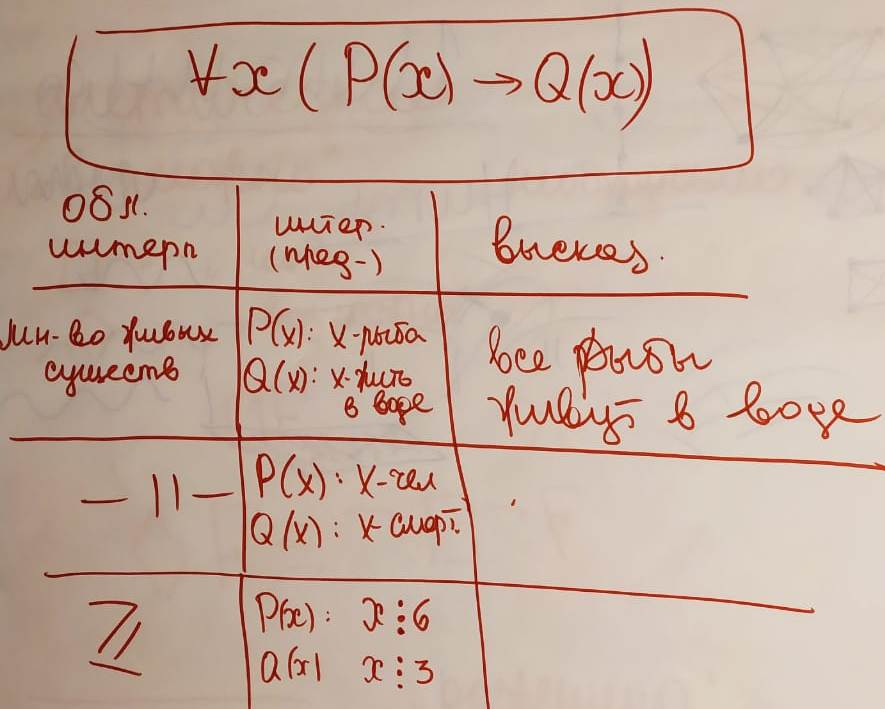 ∀x ( P(x) → Q(x))
обл. интерп
интер. (пред-)
высказ.
мн-во живых существ
P(x): x-рыба
Q(x): x-жить в воде
все рыбы живут в воде
— || —
P(x): x-чел
Q(x): x-смерт.
ℤ
P(x): x⋮6
Q(x) x⋮3